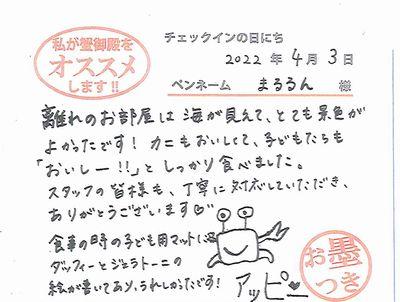 私が蟹御殿を
オススメ
します!!
チェックインの日にち
2022 年 4 月 3 日
ペンネーム まるるん 様
離れのお部屋は海が見えて、とても景色が
よかったです! カニもおいしくて、子どもたちも
「おいしー!!」と しっかり食べました。
スタッフの皆様も、丁寧に対応していただき、
ありがとうございます♡
食事の時の子ども用マットに
ダッフィーとジェラトーニの
絵が書いてあり、うれしかったです!
アッピー
お墨
つき